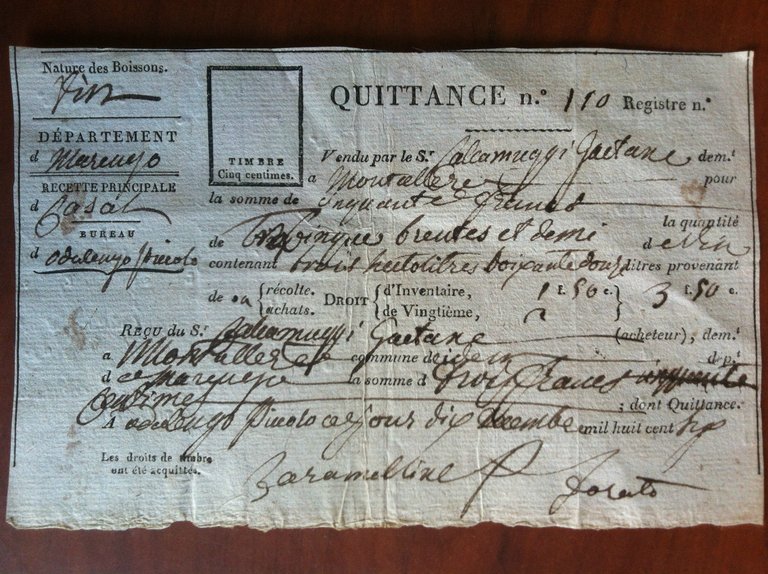 Nature des Boissons.
Vin
DÉPARTEMENT
d Marengo
RECETTE PRINCIPALE
d Casal
BUREAU
d odalengo piccolo
TIMBRE
Cinq centimes.
QUITTANCE n.° 110 Registre n.°
Vendu par le S.r Calramuggi Gaetane dem.t
a Montallere pour
la somme de cinquante francs
la quantité
de cinque brentes et demi d e vin
contenant trois hectolitres litres provenant
de sa {récolte. achats. DROIT {d'Inventaire, 1 f. 50 c. } 3 f. 50 c.
de Vingtième, 2
REÇU du S.r Calramuggi Gaetane (acheteur); dem.t
a Montallere commune de idem dep.t
d e Marengo la somme d trois francs
Centimes ; dont Quittance.
A odalengo piccolo ce jour dix decembre mil huit cent six
Les droits de timbre
ont été acquittés.